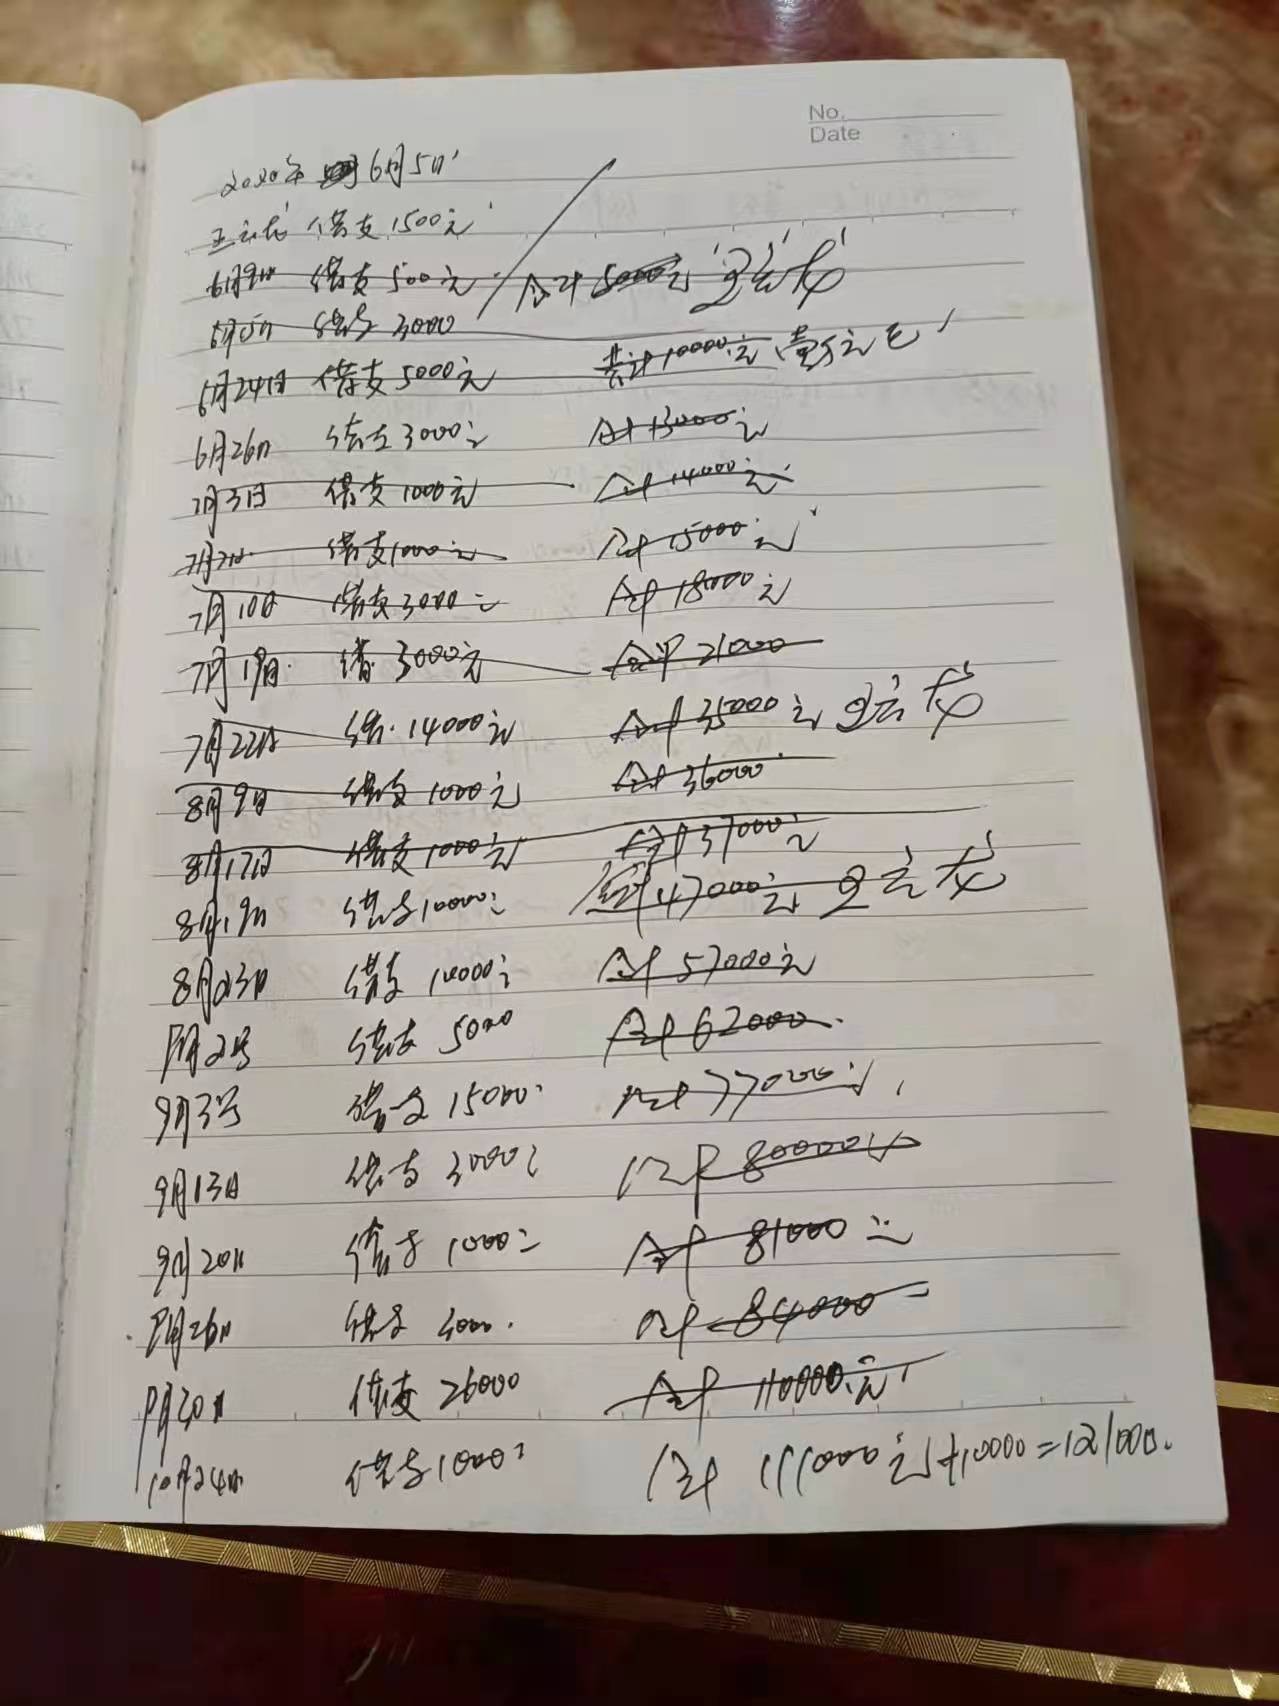 No.
Date
2020年6月5日
王云龙 借支1500元
6月9日 借支500元 合计5000元 王云龙
6月15日 借支3000
6月24日 借支5000元 共计10000元 壹万元
6月26日 借支3000元 合计13000元
7月3日 借支1000元 合计14000元
7月7日 借支1000元 合计15000元
7月10日 借支3000元 合计18000元
7月19日 借3000元 合计21000
7月22日 借14000元 合计35000元 王云龙
8月9日 借支1000元 合计36000
8月17日 借支1000元 合计37000元
8月19日 借支10000元 合计47000元 王云龙
8月23日 借支10000元 合计57000元
9月2号 借支5000 合计62000
9月3号 借支15000元 合计77000元
9月13日 借支3000元 合计80000元
9月20日 借支1000元 合计81000元
9月26日 借支3000 合计84000
9月30日 借支26000 合计110000元
10月24日 借支1000元 合计111000元+10000=121000